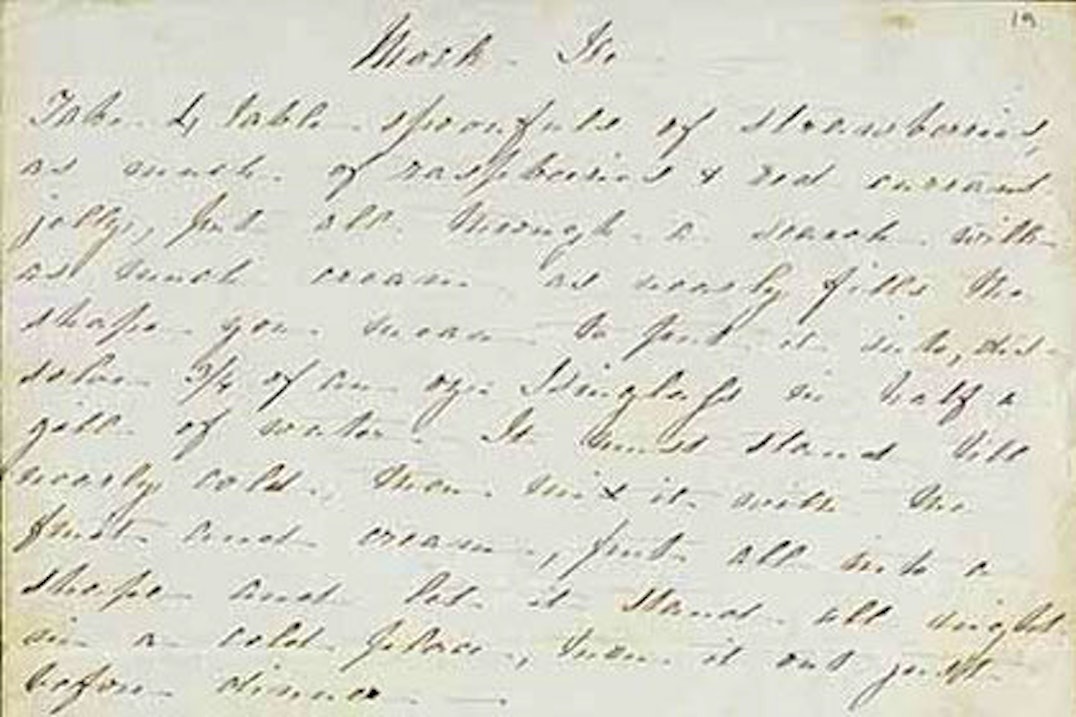 19
Mock Ice
Take 4 table spoonfuls of strawberries,
as much of raspberries & red currant
jelly, put all through a search with
as much cream as nearly fills the
shape you mean to put it into, dis-
solve 3/4 of an oz. Isinglass in half a
gill of water. It must stand till
nearly cold, then mix it with the
fruit and cream, put all into a
shape and let it stand all night
in a cold place, turn it out just
before dinner